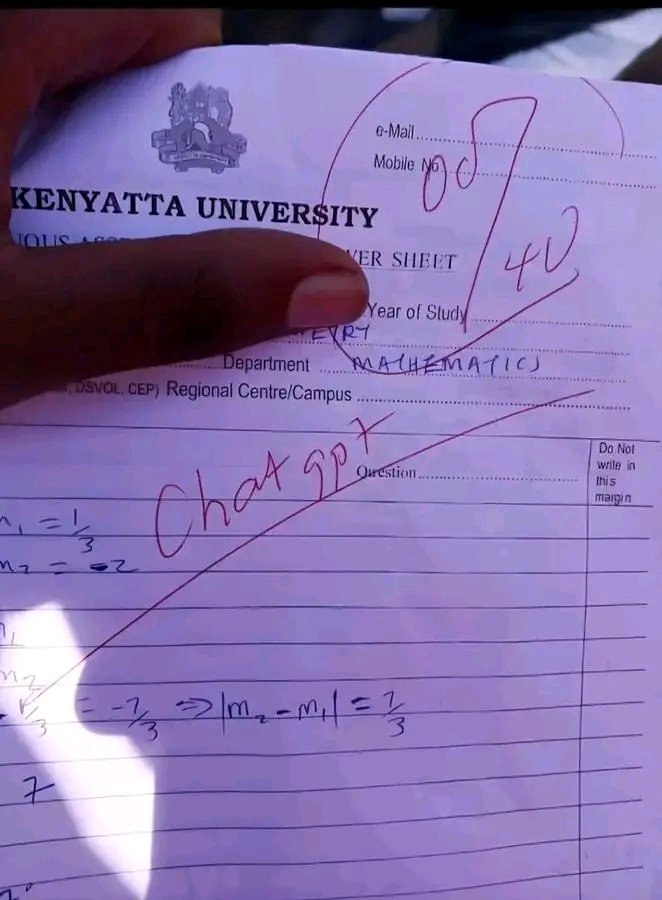 e-Mail
Mobile No
00
40
KENYATTA UNIVERSITY
VER SHEET
Year of Study
Department MATHEMATICS
DSVOL, CEP) Regional Centre/Campus
Chat gpt
Question
Do Not
write in
this
margin
= 1/3
= -2
= -7/3 ⇒ |m₂ - m₁| = 7/3
7